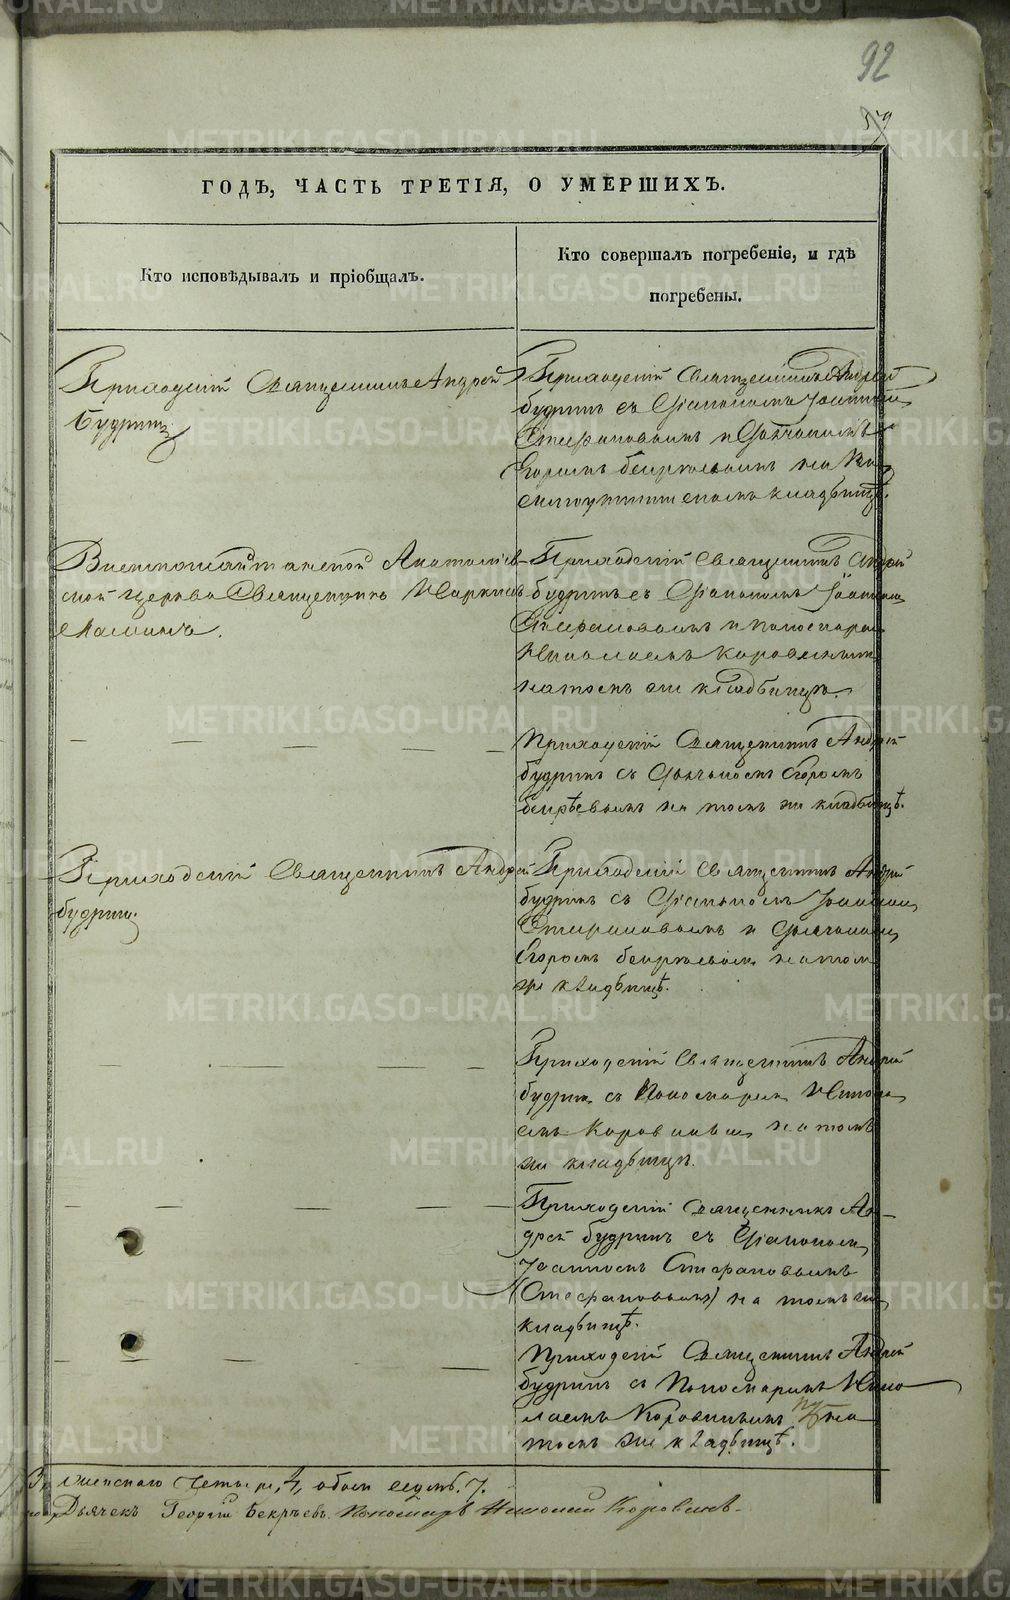 92
59
ГОДЪ, ЧАСТЬ ТРЕТІЯ, О УМЕРШИХЪ.
Кто исповѣдывалъ и пріобщалъ.
Кто совершалъ погребеніе, и гдѣ
погребены.
Приходскій Священникъ Андрей
Будринъ
Приходскій Священникъ Андрей
Будринъ съ Діакономъ Іоанномъ
Стефановымъ и Дьячкомъ
Егоромъ Бекрѣевымъ на
кладбищѣ.
Анатоліев-
ской церкви Священникъ Маркиалъ
Приходскій Священникъ Андрей
Будринъ съ Діакономъ Іоанномъ
Стефановымъ и пономаремъ
Николаемъ Коровинымъ
на томъ же кладбищѣ.
Приходскій Священникъ Андрей
Будринъ съ Дьячкомъ Егоромъ
Бекрѣевымъ на томъ же кладбищѣ.
Приходскій Священникъ Андрей
Будринъ.
Приходскій Священникъ Андрей
Будринъ съ Діакономъ Іоанномъ
Стефановымъ и Дьячкомъ
Егоромъ Бекрѣевымъ на томъ
же кладбищѣ.
Приходскій Священникъ Андрей
Будринъ съ Пономаремъ Никола
емъ Коровинымъ на томъ
же кладбищѣ.
Приходскій Священникъ Ан-
дрей Будринъ съ Діакономъ
Іоанномъ Стефановымъ
(Стефановымъ) на томъ же
кладбищѣ.
Приходскій Священникъ Андрей
Будринъ съ Пономаремъ Нико
лаемъ Коровинымъ на
томъ же кладбищѣ.
женскаго Четыре, 4, обоего седмь. 7.
Дьячекъ Георгій Бекрѣевъ. Пономарь Николай Коровинъ.
METRIKI.GASO-URAL.RU